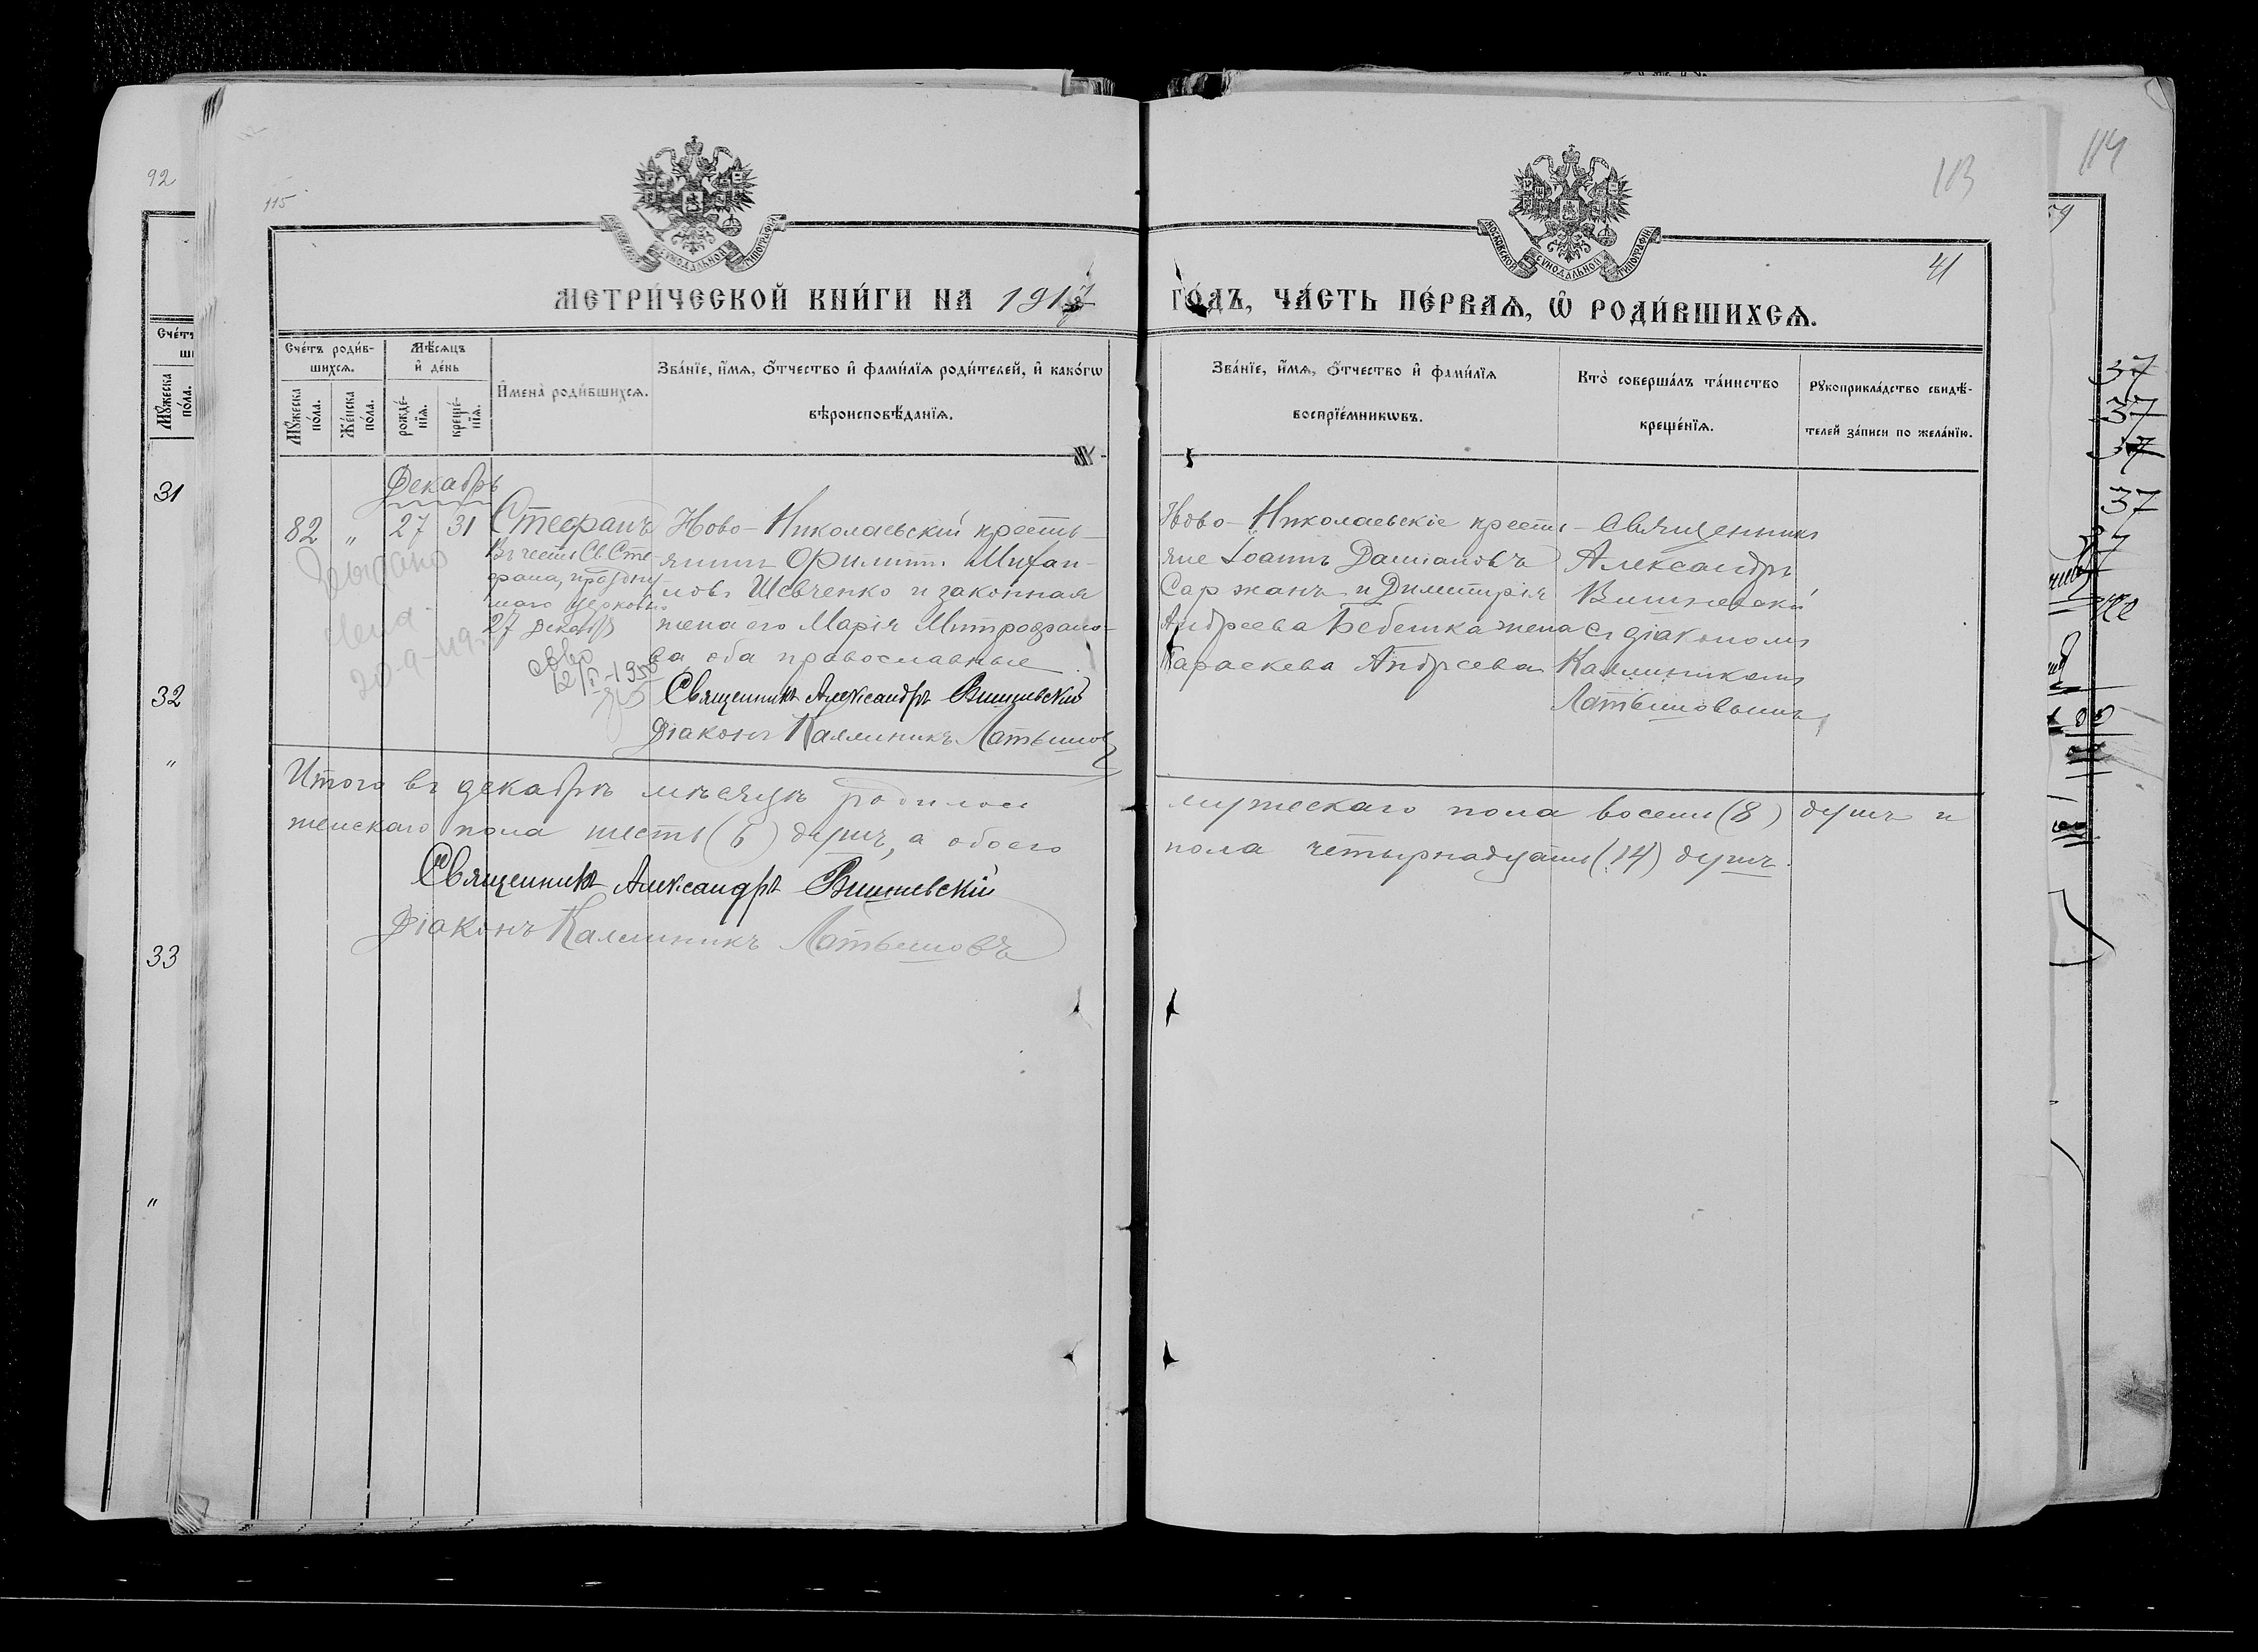 92
115
113
114
41
МЕТРИ́ЧЕСКОЙ КНИ́ГИ НА 1917 ГО́ДЪ, ЧА́СТЬ ПЕ́РВАѦ, Ѡ҆ РОДИ́ВШИХСѦ.
Сче́тъ роди́в-
шихсѧ.
Мꙋ́жеска по́ла.
Же́нска по́ла.
Мѣ́сѧцъ и҆ де́нь
рожде́-нїѧ.
креще́-нїѧ.
И҆мена̀ роди́вшихсѧ.
Зва́нїе, и҆́мѧ, ѻ҆́тчество и҆ фами́лїѧ роди́телей, и҆ како́гѡ
вѣроисповѣ́данїѧ.
Зва́нїе, и҆́мѧ, ѻ҆́тчество и҆ фами́лїѧ
воспрїе́мникѡвъ.
Кто̀ соверша́лъ та́инство
креще́нїѧ.
Рꙋкоприкла́дство свидѣ́-
телей за́писи по жела́нїю.
Декабрь
82 " 27 31 Стефанъ
Въ честь Св. Сте-
фана, праздну
27 Декабр
Ново-Николаевскій кресть-
янинъ Филиппъ Михаи-
ловъ Шевченко и законная
жена его Марія Митрофано-
ва, оба православные
Священникъ Александръ Вишневскій
Діаконъ Каллиникъ Латышовъ
Ново-Николаевскіе кресть-
яне Іоаннъ Даміановъ
Саржанъ и Димитрія
Андреева Бебешка жена
Параскева Андреева
Священникъ
Александръ
Вишневскій
съ діакономъ
Каллиникомъ
Латышовымъ
Итого въ декабрѣ мѣсяцѣ родилось мужескаго пола восемь (8) душъ и
женскаго пола шесть (6) душъ, а обоего пола четырнадцать (14) душъ.
Священникъ Александръ Вишневскій
Діаконъ Каллиникъ Латышовъ
31
32
"
33
"
37
37
37
37